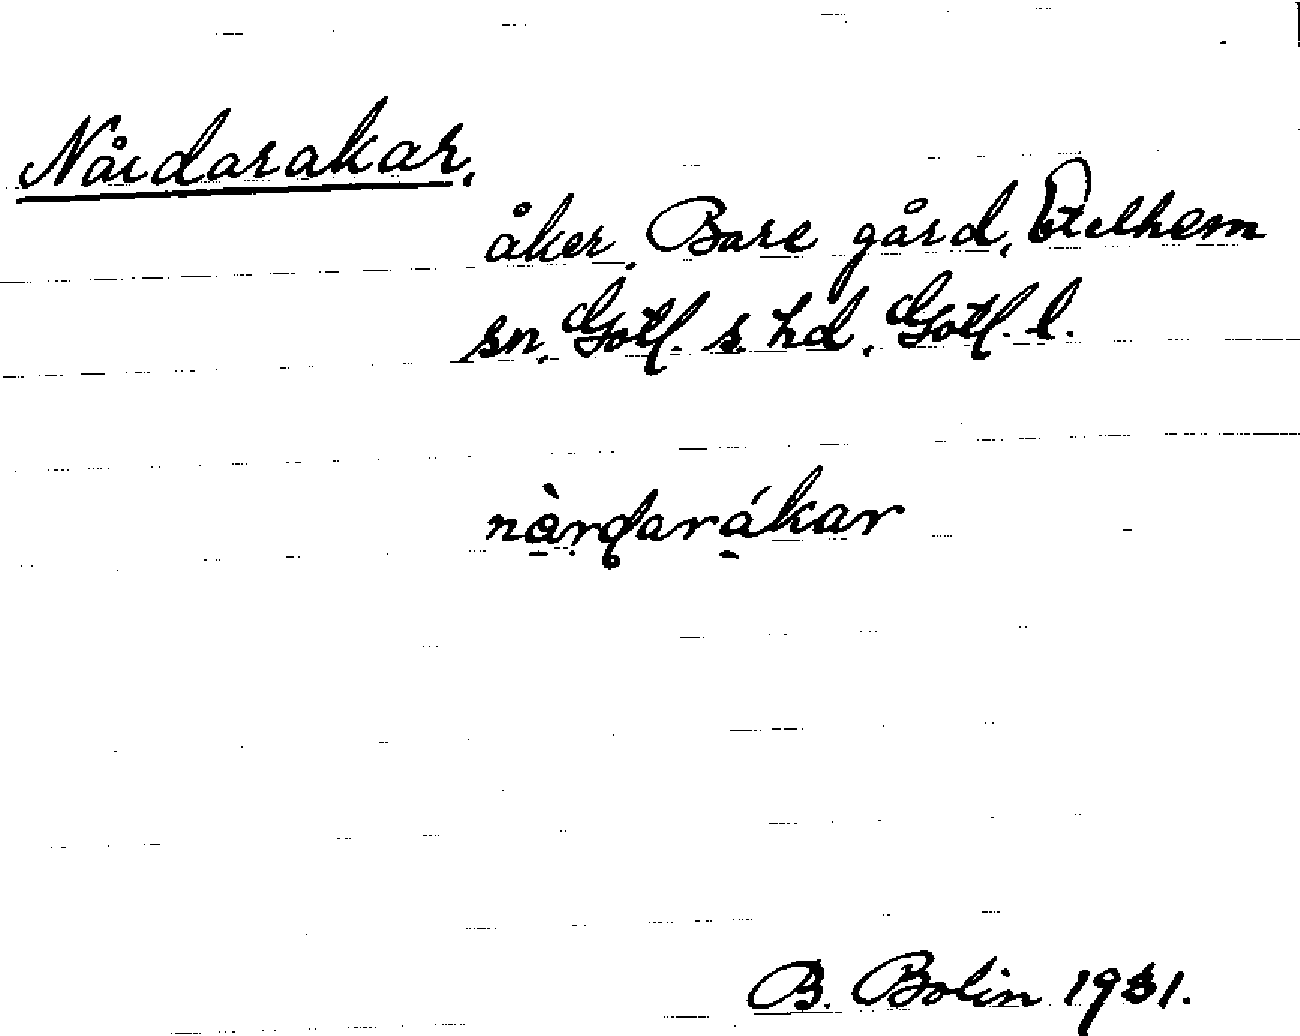 Nårdarakar.
åker, Bare gård, Etelhem
sn. Gotl. s. hd. Gotl. l.
nàrdarákar
B. Bolin 1931.